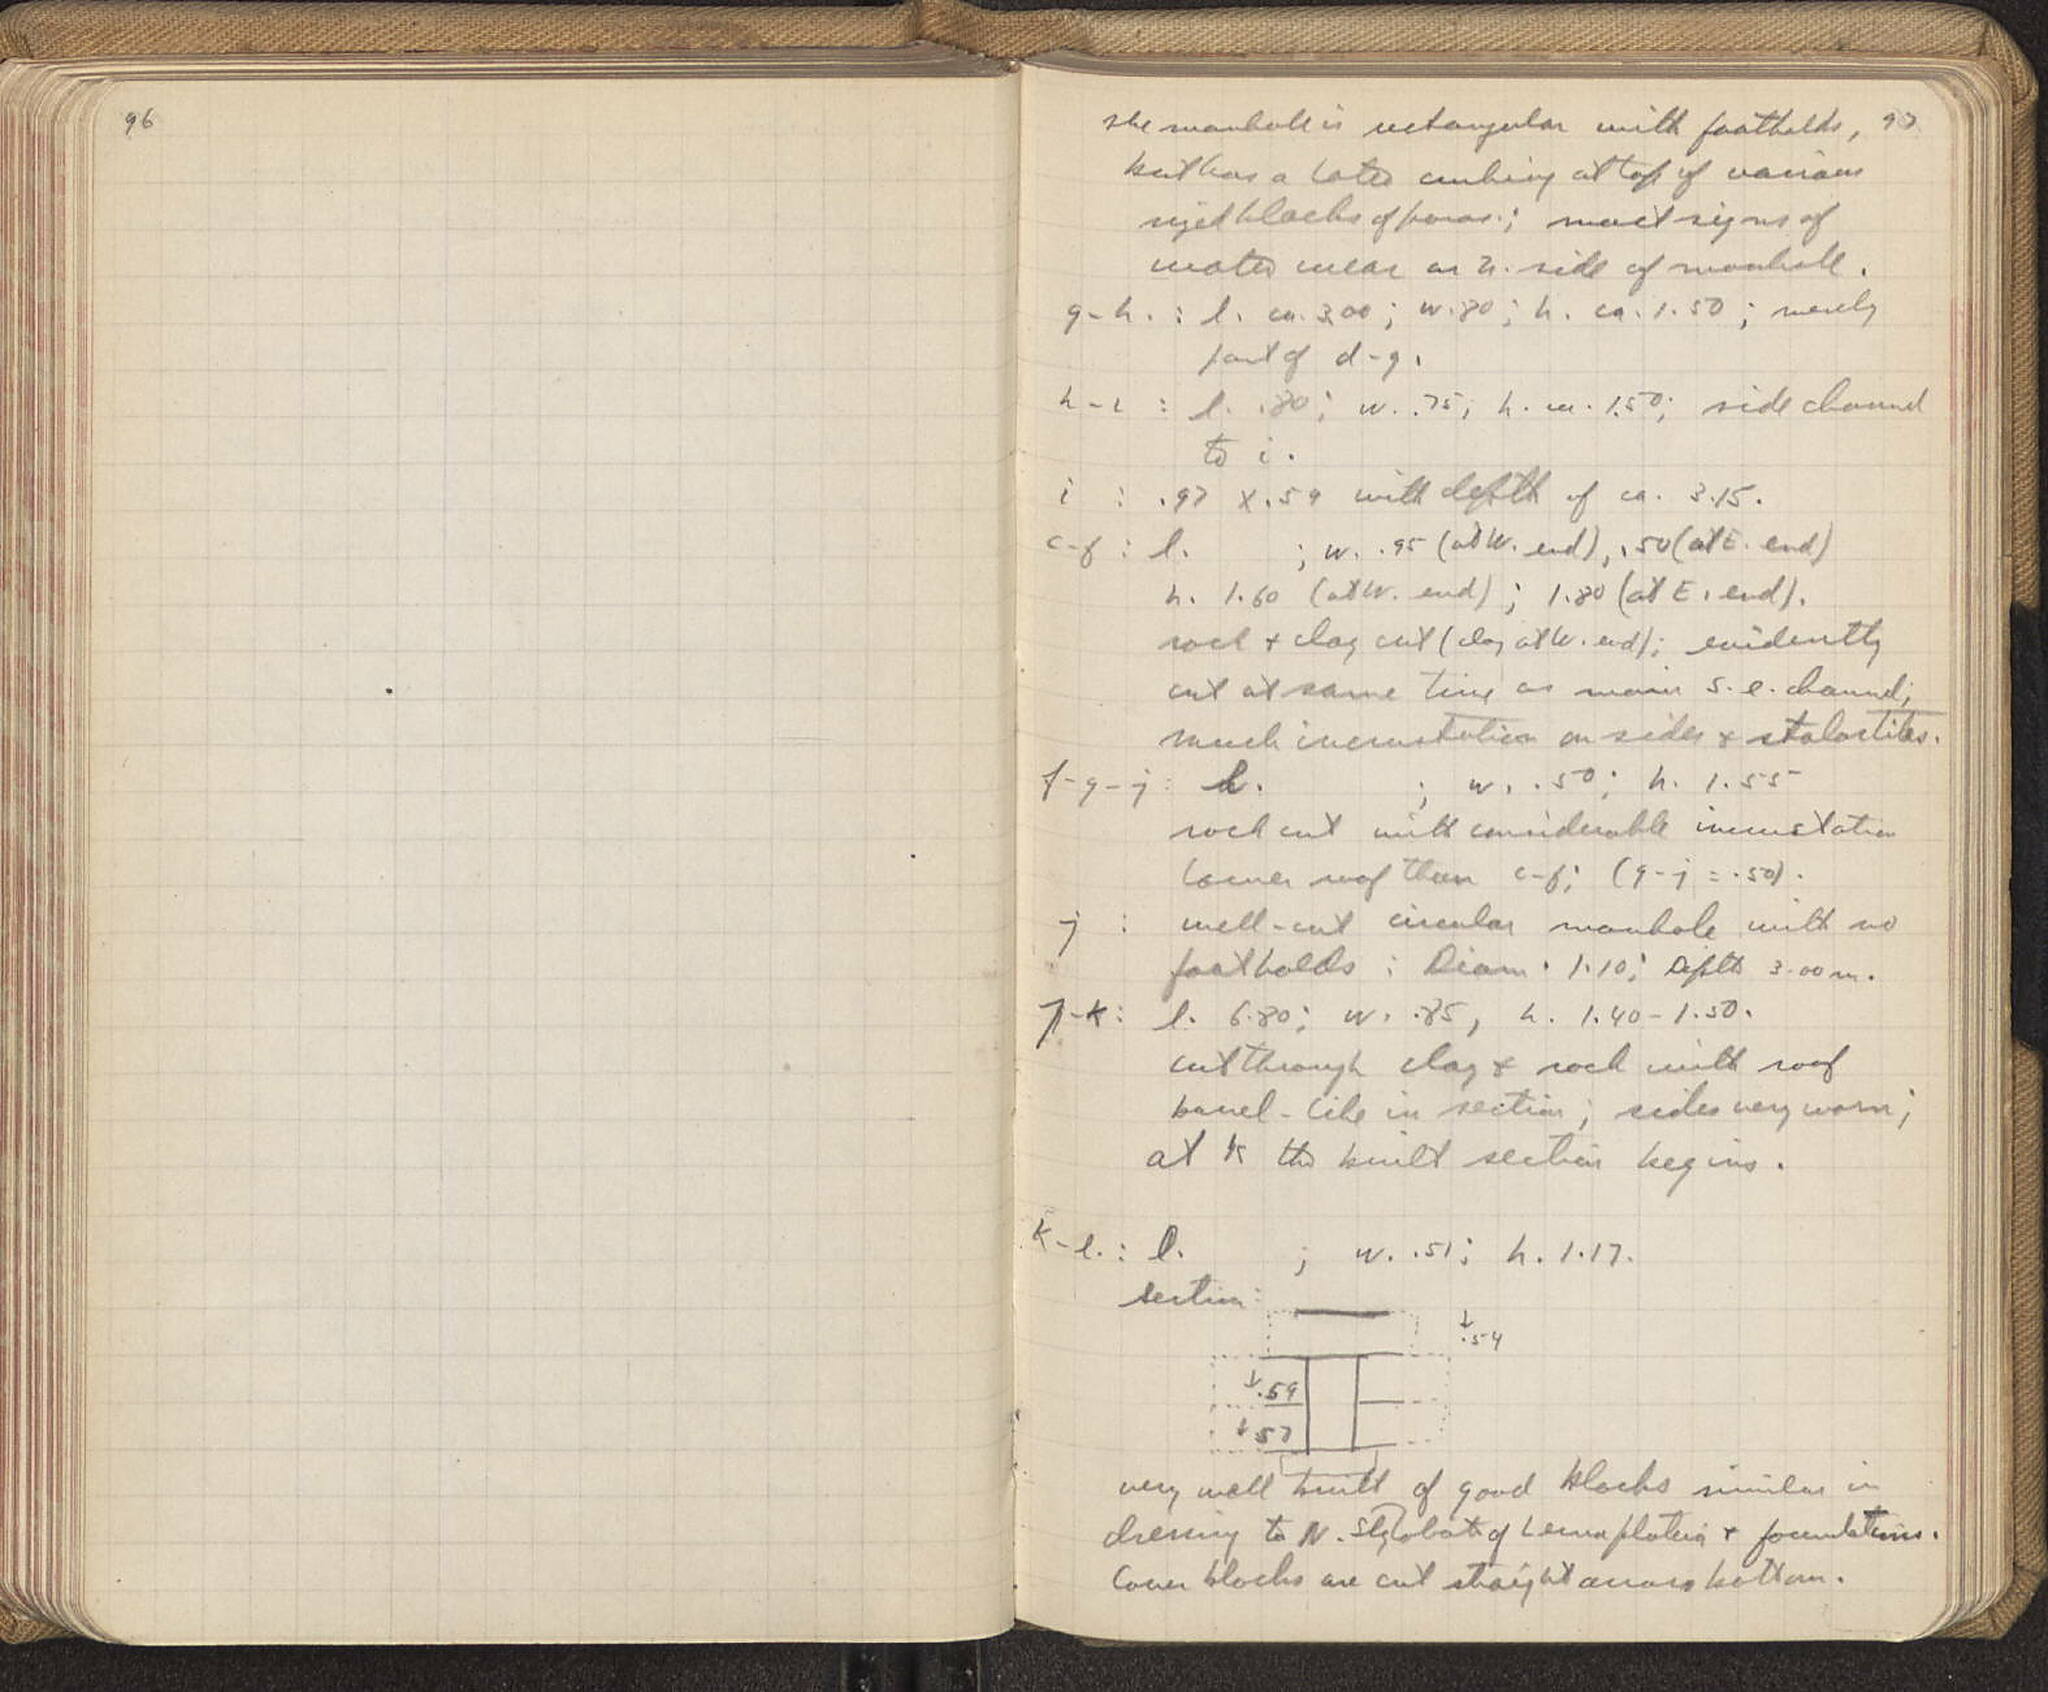 96
97
The manhole is rectangular with footholds,
but has a later curbing at top of various
sized blocks of poros; most signs of
water wear on N. side of manhole.
g-h. : l. ca. 3.00; w. .80; h. ca. 1.50; merely
part of d-g.
h-i : l. .80; w. .75; h. ca. 1.50; side channel
to i.
i : .97 x .59 with depth of ca. 3.15.
c-f : l. ; w. .95 (at W. end), .50 (at E. end)
h. 1.60 (at W. end); 1.80 (at E. end).
rock + clay cut (clay at W. end); evidently
cut at same time as main S. e. channel;
much incrustation on sides + stalactites.
f-g-j : l. ; w. .50; h. 1.55
rock cut with considerable incrustation
lower roof than c-f; (g-j = .50).
j : well-cut circular manhole with no
footholds : Diam. 1.10; depth 3.00 m.
j-k : l. 6.80; w. .85, h. 1.40-1.50.
cut through clay + rock with roof
barrel-like in section; sides very worn;
at K the built section begins.
K-l. : l. ; w. .51; h. 1.17.
section :
↓ .54
↓ .59
↓ .57
very well built of good blocks similar in
dressing to N. stylobate of + foundations.
Cover blocks are cut straight across bottom.